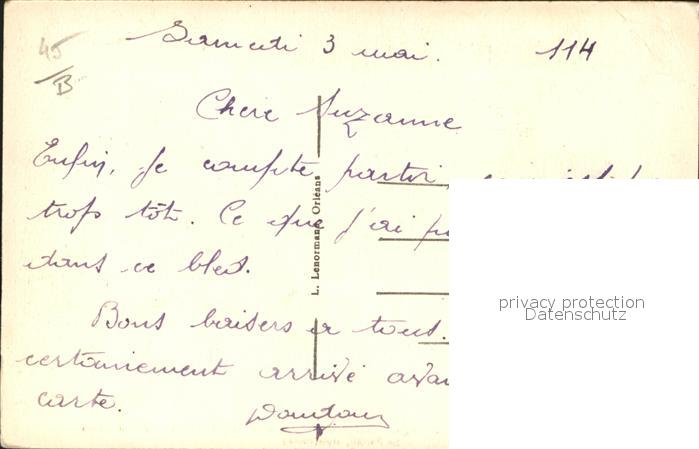 45/B
Samedi 3 mai. 114
Chère Suzanne
Enfin, je compte partir
trop tôt. Ce que j'ai pu
dans ce bled.
Bons baisers a tous.
certainement arrivé avan
carte.
L. Lenormand, Orléans
privacy protection
Datenschutz